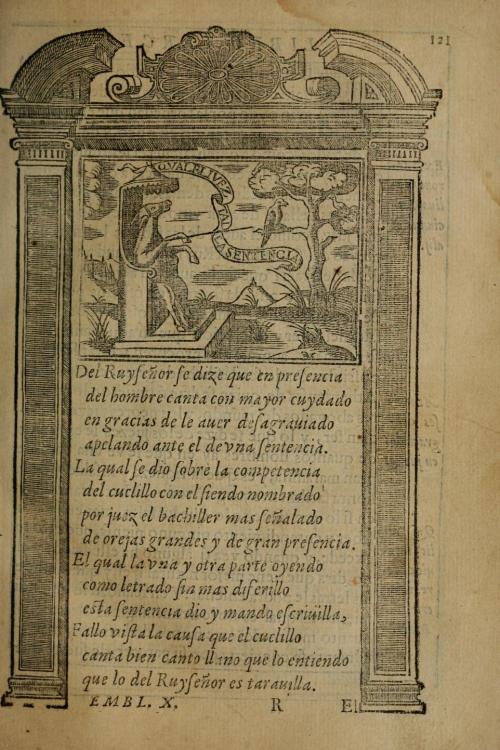 121
QVAL EL IVEZ
TAL
LA SENTENCIA
Del Ruyſeñor ſe dize que en preſencia
del hombre canta con mayor cuydado
en gracias de le auer deſagrauiado
apelando ante el de vna ſentencia.
La qual ſe dio ſobre la competencia
del cuclillo con el ſiendo nombrado
por juez el bachiller mas ſeñalado
de orejas grandes y de gran preſencia.
El qual la vna y otra parte oyendo
como letrado ſin mas diferillo
esta ſentencia dio y mando eſcriuilla,
Fallo viſta la cauſa que el cuclillo
canta bien canto llano que lo entiendo
que lo del Ruyſeñor es tarauilla.
EMBL. X. R El